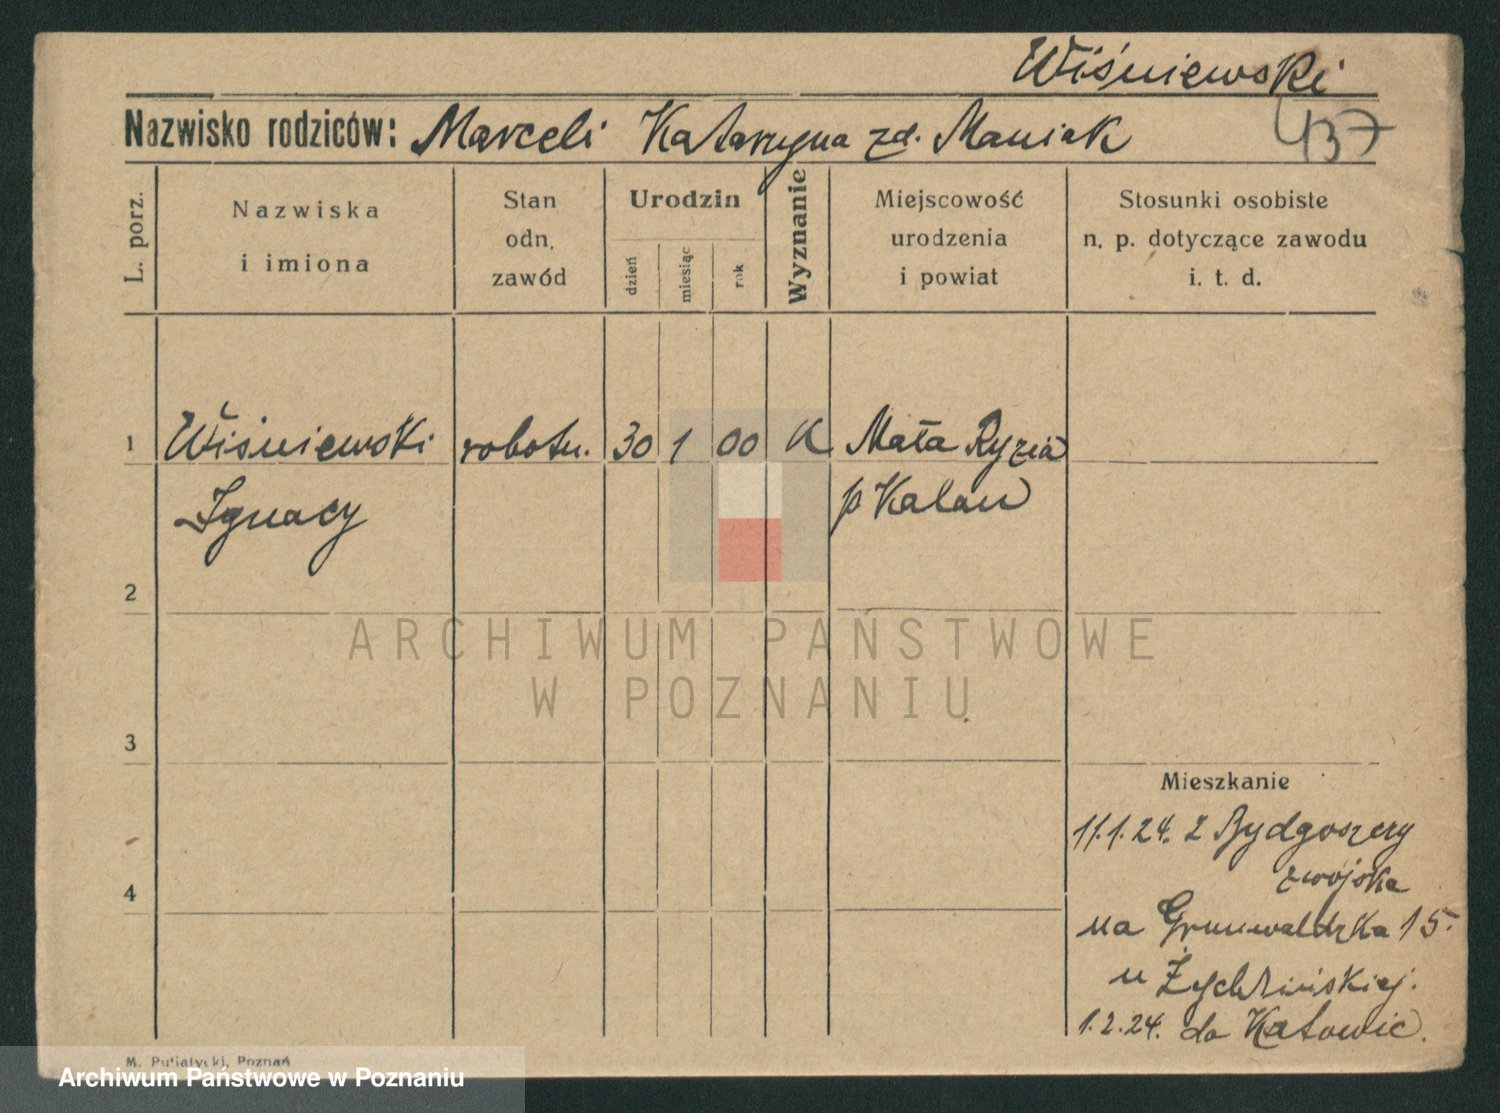 Wiśniewski
Nazwisko rodziców: Marceli Katarzyna zd. Maniak
437
L. porz.
Nazwiska
i imiona
Stan
odn.
zawód
Urodzin
dzień
miesiąc
rok
Wyznanie
Miejscowość
urodzenia
i powiat
Stosunki osobiste
n. p. dotyczące zawodu
i. t. d.
1 Wiśniewski robotn. 30 1 00 K Mała Ryzia
Ignacy p Kalau
2
ARCHIWUM PAŃSTWOWE
W POZNANIU
3
Mieszkanie
11.1.24. z Bydgoszczy
z wojska
4
na Grunwaldzka 15.
u Żychlińskiej.
1.2.24. do Katowic.
M. Putiatycki, Poznań
Archiwum Państwowe w Poznaniu